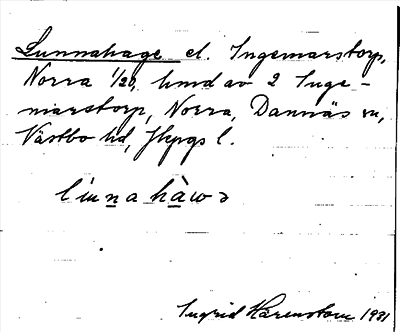 Lunnahage el. Ingemarstorp,
Norra 1/20, hmd av 2 Inge-
marstorp, Norra, Dannäs sn,
Västbo hd, Jkpgs l.
lùnnahàwə
Ingrid Härenstam 1931